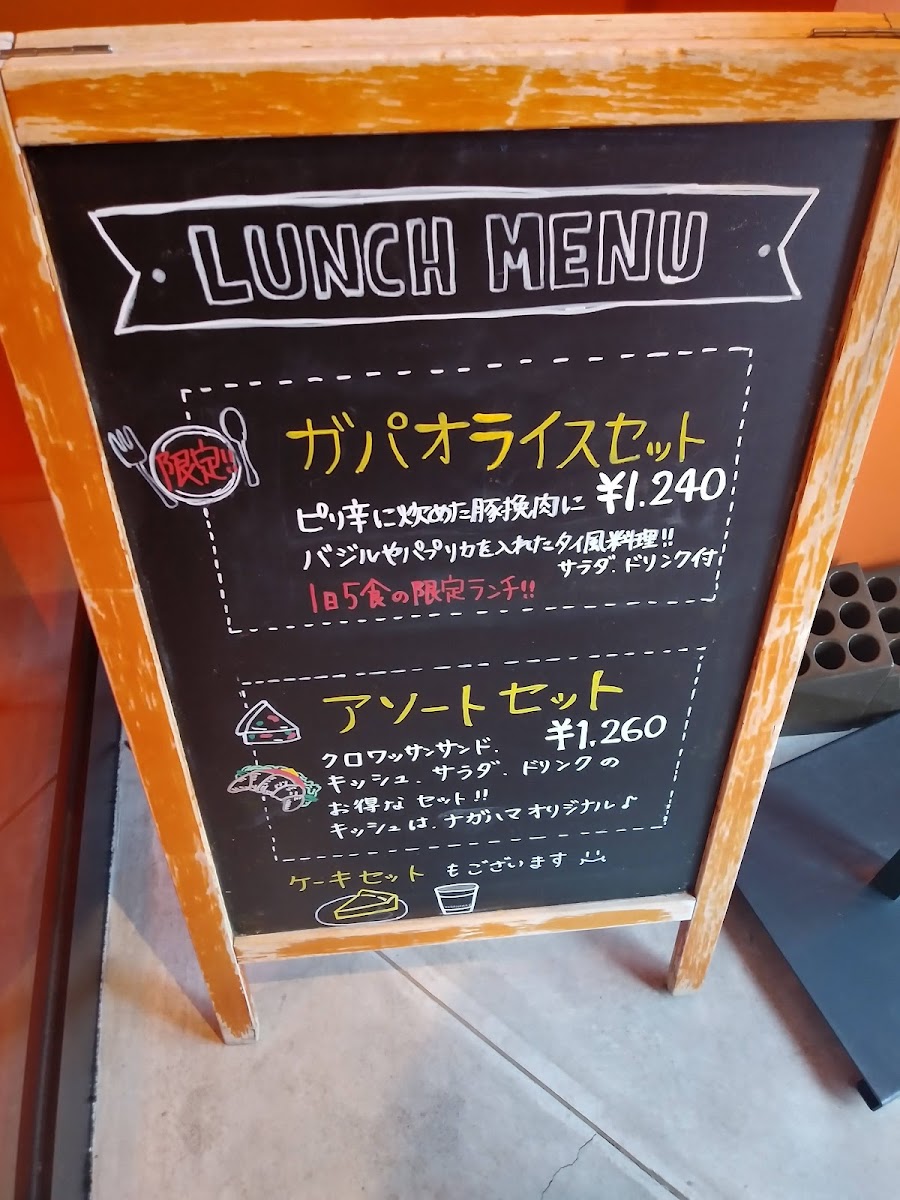 LUNCH MENU
限定!!
ガパオライスセット
¥1.240
ピリ辛に炒めた豚挽肉に
バジルやパプリカを入れたタイ風料理!!
サラダ.ドリンク付
1日5食の限定ランチ!!
アソートセット
¥1.260
クロワッサンサンド.
キッシュ.サラダ.ドリンクの
お得なセット!!
キッシュは.ナガハマオリジナル♪
ケーキセットもございます